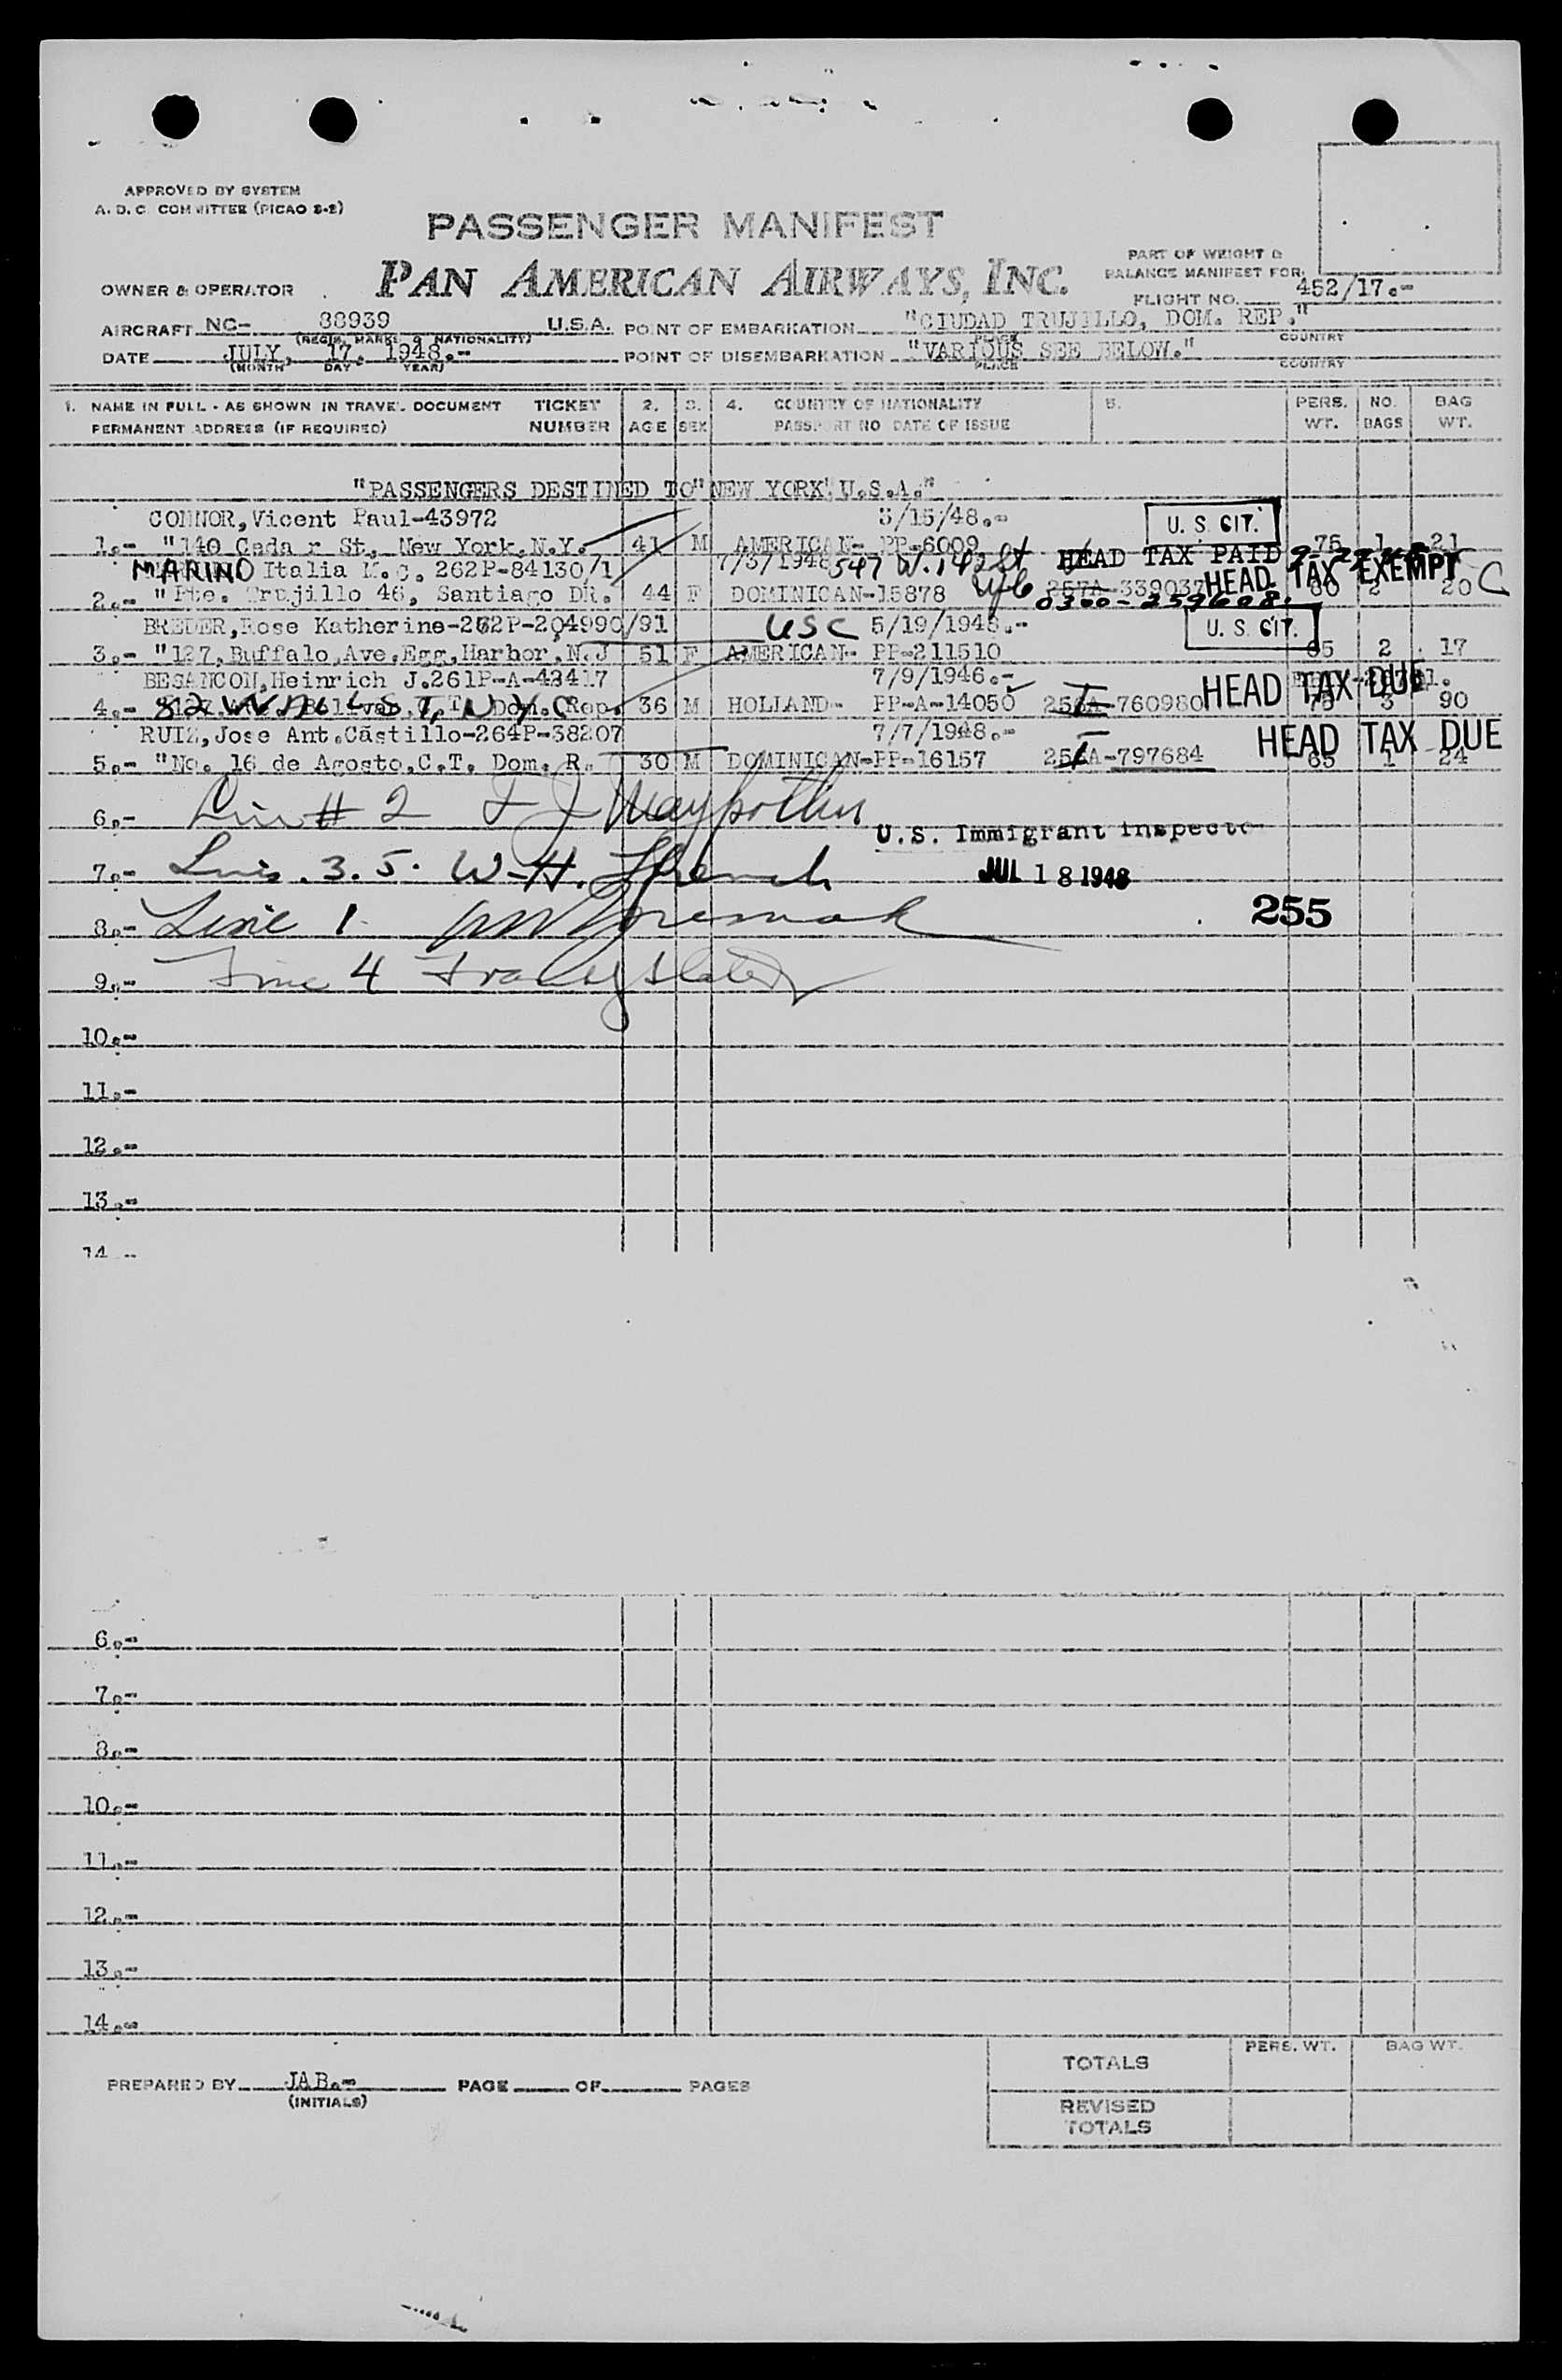 APPROVED BY SYSTEM
A. D. C. COMMITTEE (PICAO 8-2)
PASSENGER MANIFEST
PART OF WEIGHT &
BALANCE MANIFEST FOR:
OWNER & OPERATOR PAN AMERICAN AIRWAYS, INC.
FLIGHT NO. 452/17.-
AIRCRAFT NC- 88939 U.S.A. POINT OF EMBARKATION "CIUDAD TRUJILLO, DOM. REP."
(REGIS. MARKS & NATIONALITY) PLACE COUNTRY
DATE JULY, 17, 1948.- POINT OF DISEMBARKATION "VARIOUS SEE BELOW."
(MONTH DAY YEAR) PLACE COUNTRY
1. NAME IN FULL - AS SHOWN IN TRAVEL DOCUMENT TICKET 2. 3. 4. COUNTRY OF NATIONALITY 5. PERS. NO. BAG
PERMANENT ADDRESS (IF REQUIRED) NUMBER AGE SEX PASSPORT NO DATE OF ISSUE WT. BAGS WT.
"PASSENGERS DESTINED TO" NEW YORK" U.S.A."
CONNOR, Vicent Paul-43972 3/15/48.- U. S. CIT.
1.- "140 Ceda r St, New York, N.Y. 41 M AMERICAN- PP-6009 75 1 21
MARINO Italia M.c. 262P-84130/1 7/3/1948 547 W. 142 St HEAD TAX PAID
2.- "Pte. Trujillo 46, Santiago DR. 44 F DOMINICAN-15878 NYC 257A-339037 HEAD TAX EXEMPT 60 2 20 C
0300-259608.
BREDER, Rose Katherine-262P-204990/91 USC 5/19/1948.- U. S. CIT.
3.- "127, Buffalo, Ave, Egg, Harbor, N.J 51 F AMERICAN- PP-211510 65 2 17
BESANCON, Heinrich J. 261P-A-43417 7/9/1946.-
4.- 82 Wm St, NYC Dom. Rep. 36 M HOLLAND- PP-A-14050 -760980 HEAD TAX DUE 75 3 90
RUIZ, Jose Ant. Castillo-264P-38207 7/7/1948.-
5.- "No. 16 de Agosto, C.T. Dom. R. 30 M DOMINICAN-PP-16157 -797684 HEAD TAX DUE 65 1 24
6.- Line # 2
U.S. Immigrant Inspecto
7.- Lines. 3. 5. W. H. French JUL 18 1948
8.- Line 1 255
9.- Line 4
10.-
11.-
12.-
13.-
14.-
6.-
7.-
8.-
10.-
11.-
12.-
13.-
14.-
TOTALS PERS. WT. BAG WT.
PREPARED BY JAB.- PAGE OF PAGES
(INITIALS)
REVISED
TOTALS